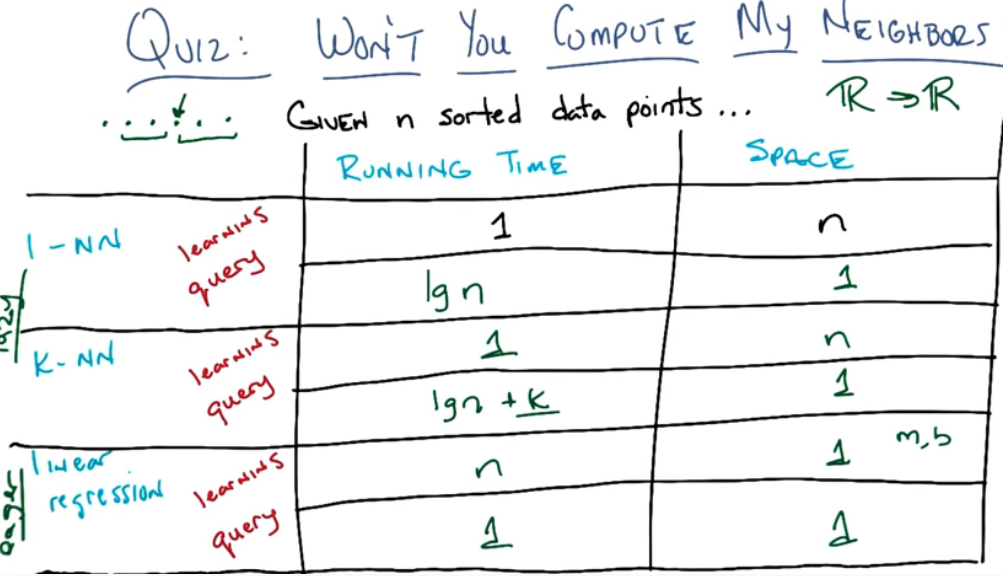 QUIZ: WON'T YOU COMPUTE MY NEIGHBORS
GIVEN n sorted data points ... ℝ → ℝ
RUNNING TIME SPACE
1-NN learning 1 n
query lg n 1
lazy
K-NN learning 1 n
query lg n + K 1
linear regression learning n 1 m,b
eager
query 1 1